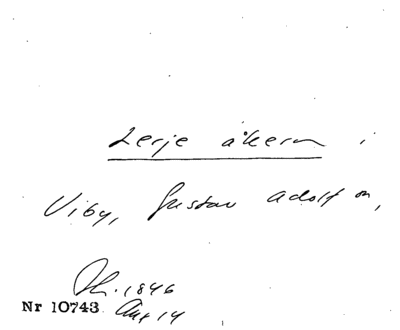 Lerje åkern i
Viby, Gustav Adolf sn,
1846
Nr 10743 Akt 14